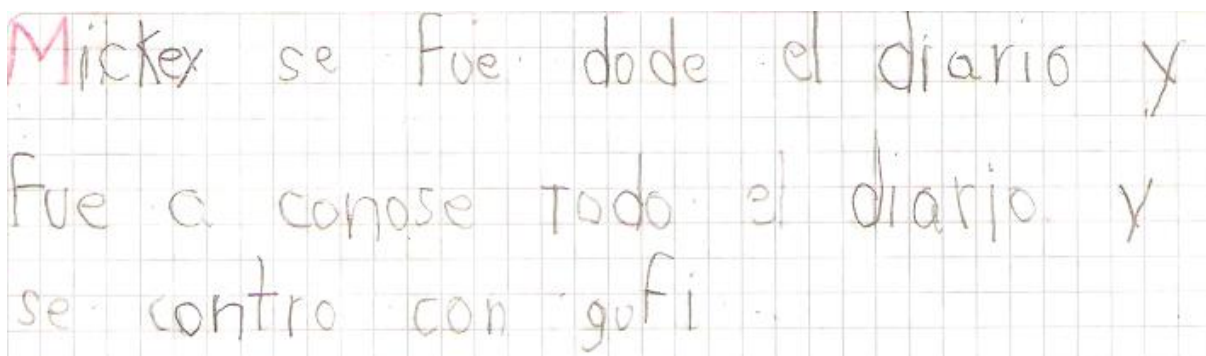 Mickey se fue dode el diario y
fue a conose todo el diario y
se contro con gufi